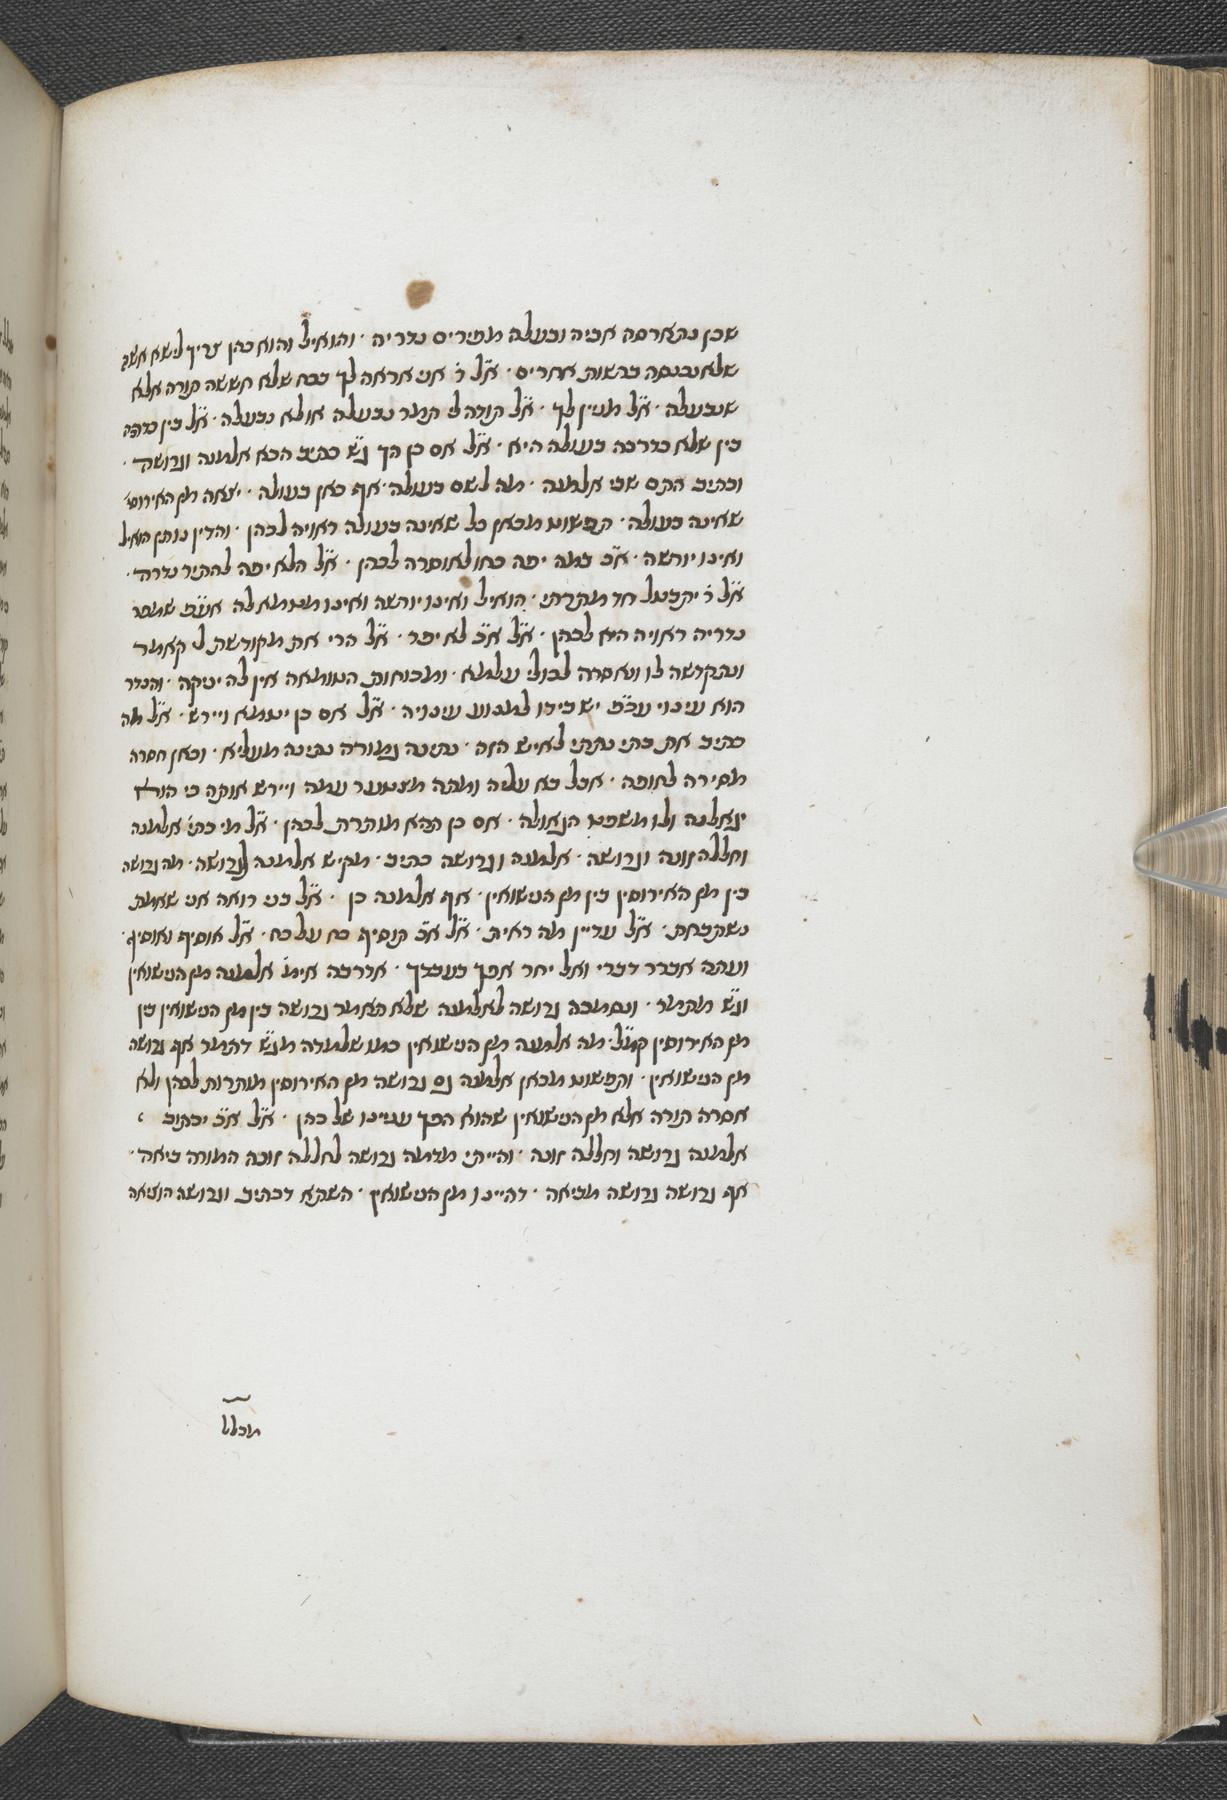 שכן נתארסה אביה ובעלה מפירים נדריה · והואיל והוא כהן צריך לישא אשה
שלא נכנסה ברשות אחרים · א״ל ר׳ אני אראה לך ככח שלא חששה תורה אלא
שנבעלה · א״ל מניין לך · א״ל תורה לי תימר נבעלה או לא נבעלה · א״ל בין כדרכה
בין שלא כדרכה בעולה היא · א״ל אם כן הך ג״ש כתיב הכא אלמנה וגרושה ·
וכתיב התם שבי אלמנה · מה לשם בעולה · אף כאן בעולה · יצאת מן האירוסי׳
שאינה בעולה · תפשוט מכאן כל שאינה בעולה ראויה לכהן · והדין נותן הואיל
ואינו יורשה · א״כ במה יפה כחו לאוסרה לכהן · א״ל הלא יפה להתיר נדרה ·
א״ל ר׳ יקבעל חד מתרתי · הואיל ואינו יורשה ואינו מטמא לה אע״פ שמפר
נדריה ראויה היא לכהן · א״ל א״כ לא יפר · א״ל הרי את מקודשת לי קאמר
ונתקדשה לו ונאסרה לכולי עלמא · ומכוחות הטומאה אין לה יניקה · והנדר
הוא עינוי עכ״פ יש בידו למנוע עינויה · א״ל אם כן יטמא ויירש · א״ל מה
כתיב את בתי נתתי לאיש הזה · נתינה גמורה נתינה מעליא · וכאן חסרה
מסירה לחופה · אבל בא עליה ומתה מצטער עמה ויירש אותה כי הוא
יגאלנה ולו משפט הגאולה · אם כן תהא מותרת לכהן · א״ל מי כתי׳ אלמנה
וחללה זונה וגרושה · אלמנה וגרושה כתיב · מקיש אלמנה לגרושה · מה גרושה
בין מן האירוסין בין מן הנישואין · אף אלמנה כן · א״ל בני רואה אני שאמת
נשתבחת · א״ל עדיין מה ראית · א״ל א״כ תוסיף כח על כח · א״ל אוסיף ואוסיף ·
ועתה אברר דברי ואל יחר אפך בעבדך · אדרבה אימ׳ אלמנה מן הנישואין
וג״ש תיתמר · ונסמכה גרושה לאלמנה שלא תאמר גרושה בין מן הנישואין בין
מן האירוסין קמ״ל · מה אלמנה מן הנישואין כמו שלמדה מג״ש דתמר אף גרושה
מן הנישואין · ותפשוט מכאן אלמנה גם גרושה מן האירוסין מותרות לכהן ולא
אסרה תורה אלא מן הנישואין שהוא הפך עניינו של כהן · א״ל א״כ יכתוב
אלמנה גרושה וחללה זונה · והייתי מדמה גרושה לחללה זונה המורה ביאה ·
אף גרושה גרושה מביאה · דהיינו מן הנישואין · השתא דכתיב וגרושה הוציאה
מכלל